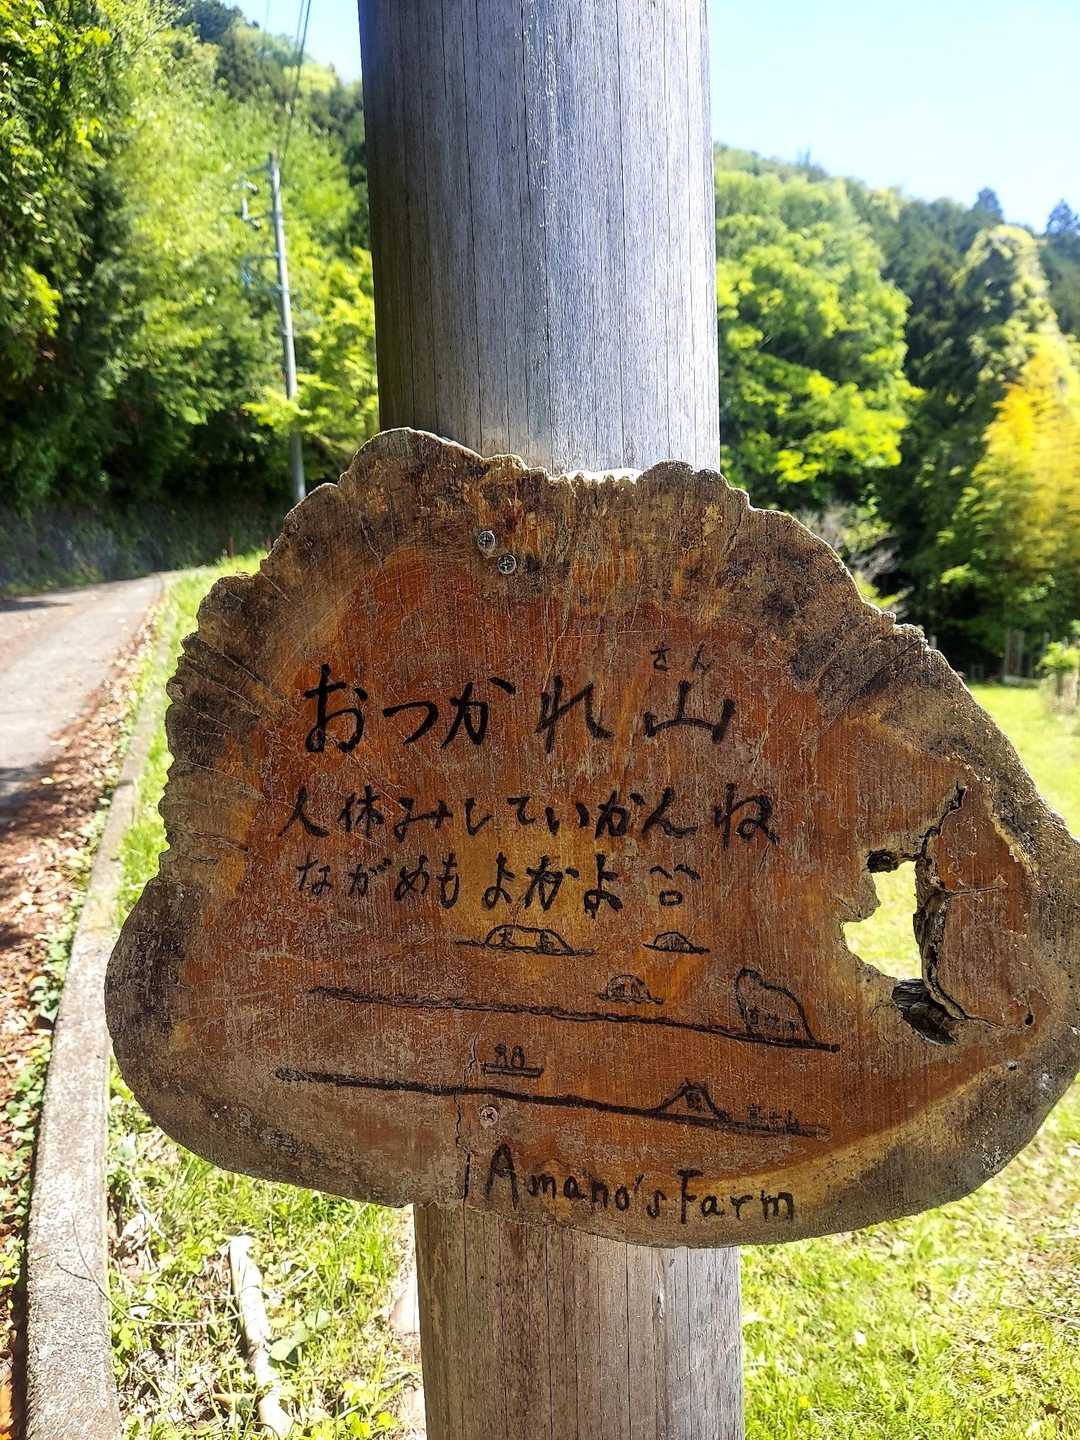 さん
おつかれ山
人休みしていかんね
ながめもよかよ
Amano's Farm